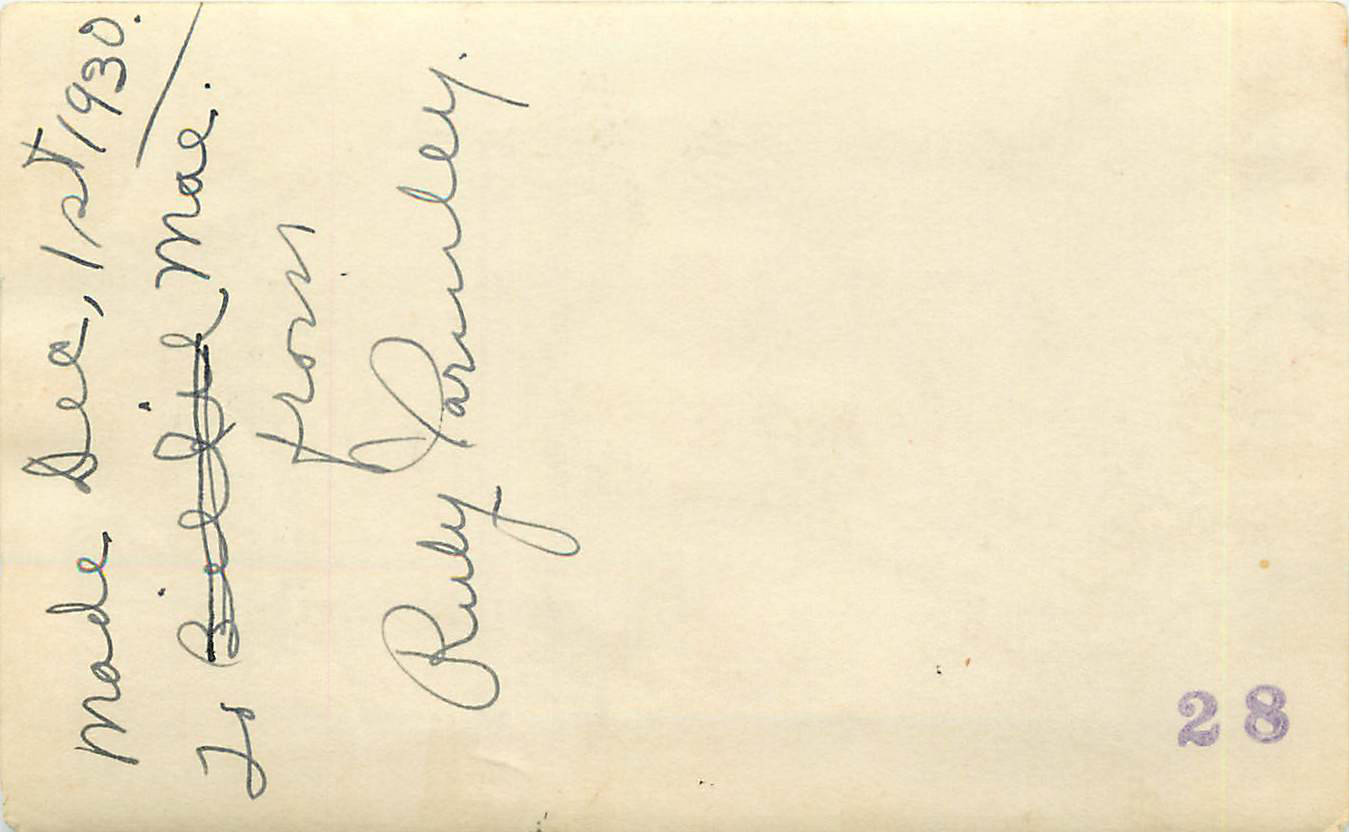 Made Dec, 1st 1930.
To Billie Mae.
From
Ruby Parmley.
28